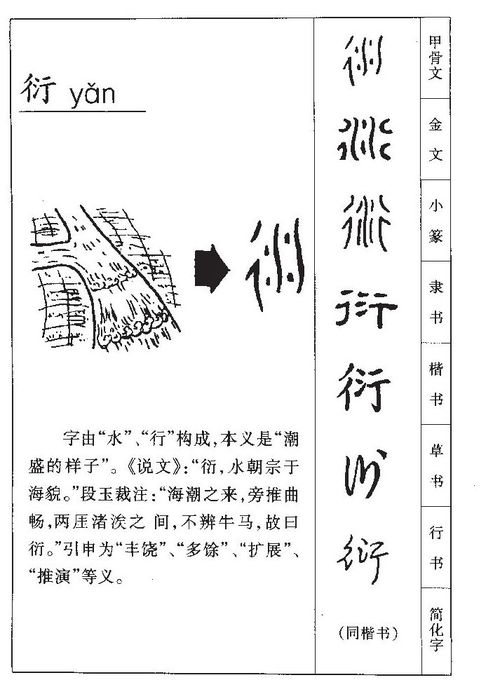 衍 yǎn
字由“水”、“行”构成，本义是“潮
盛的样子”。《说文》：“衍，水朝宗于
海貌。”段玉裁注：“海潮之来，旁推曲
畅，两厓渚涘之 间，不辨牛马，故曰
衍。”引申为“丰饶”、“多馀”、“扩展”、
“推演”等义。
衍 甲骨文
衍 金文
衍 小篆
衍 隶书
衍 楷书
衍 草书
衍 行书
（同楷书） 简化字